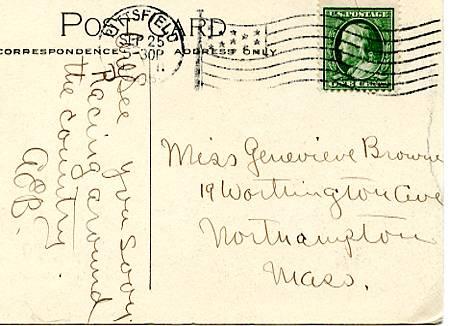 POST CARD
CORRESPONDENCE
ADDRESS ONLY
PITTSFIELD
SEP 25
30P
U.S. POSTAGE
see you soon.
Racing around
the country.
Miss Genevieve Browne
19 Worthington Ave
Northampton
Mass.